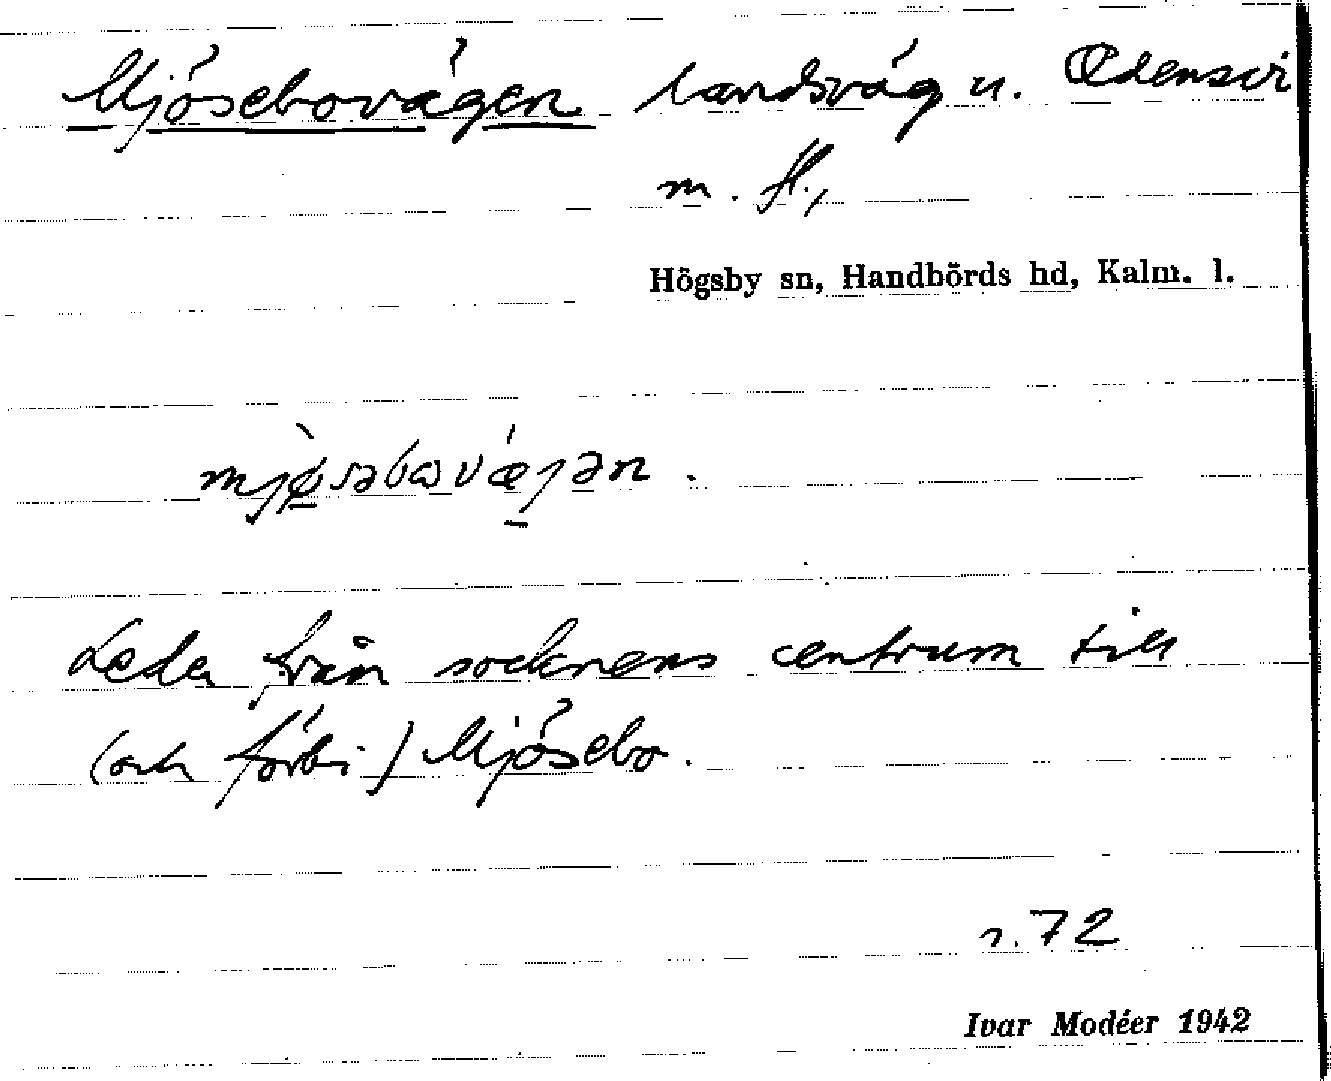 Mjösebovägen landsväg u. Ödensvi
m. fl.,
Högsby sn, Handbörds hd, Kalm. l.
Leder från socknens centrum till
(och förbi) Mjösebo.
s. 72
Ivar Modéer 1942